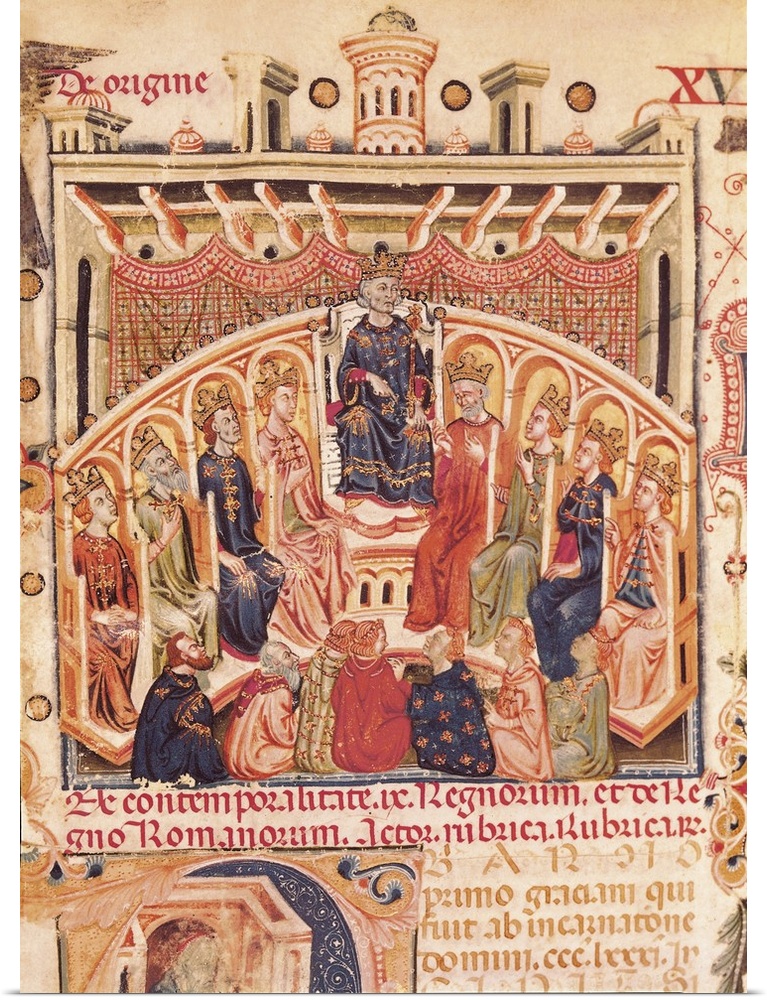 De origine
XV
De contemporalitate.ix.Regnorum.et de Re
gno Romanorum. Actor.rubrica.Rubrica.R.
primo graciani qui
fuit ab incarnatone
domini.ccc.lxxxi.